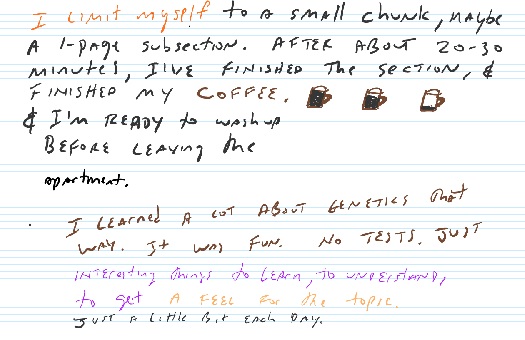 I limit myself to a small chunk, maybe
a 1-page subsection. After about 20-30
minutes, I've finished the section, &
finished my coffee.
& I'm ready to wash up
before leaving the
apartment.
I learned a lot about genetics that
way. It was fun. No tests. Just
interesting things to learn, to understand,
to get a feel for the topic.
Just a little bit each day.